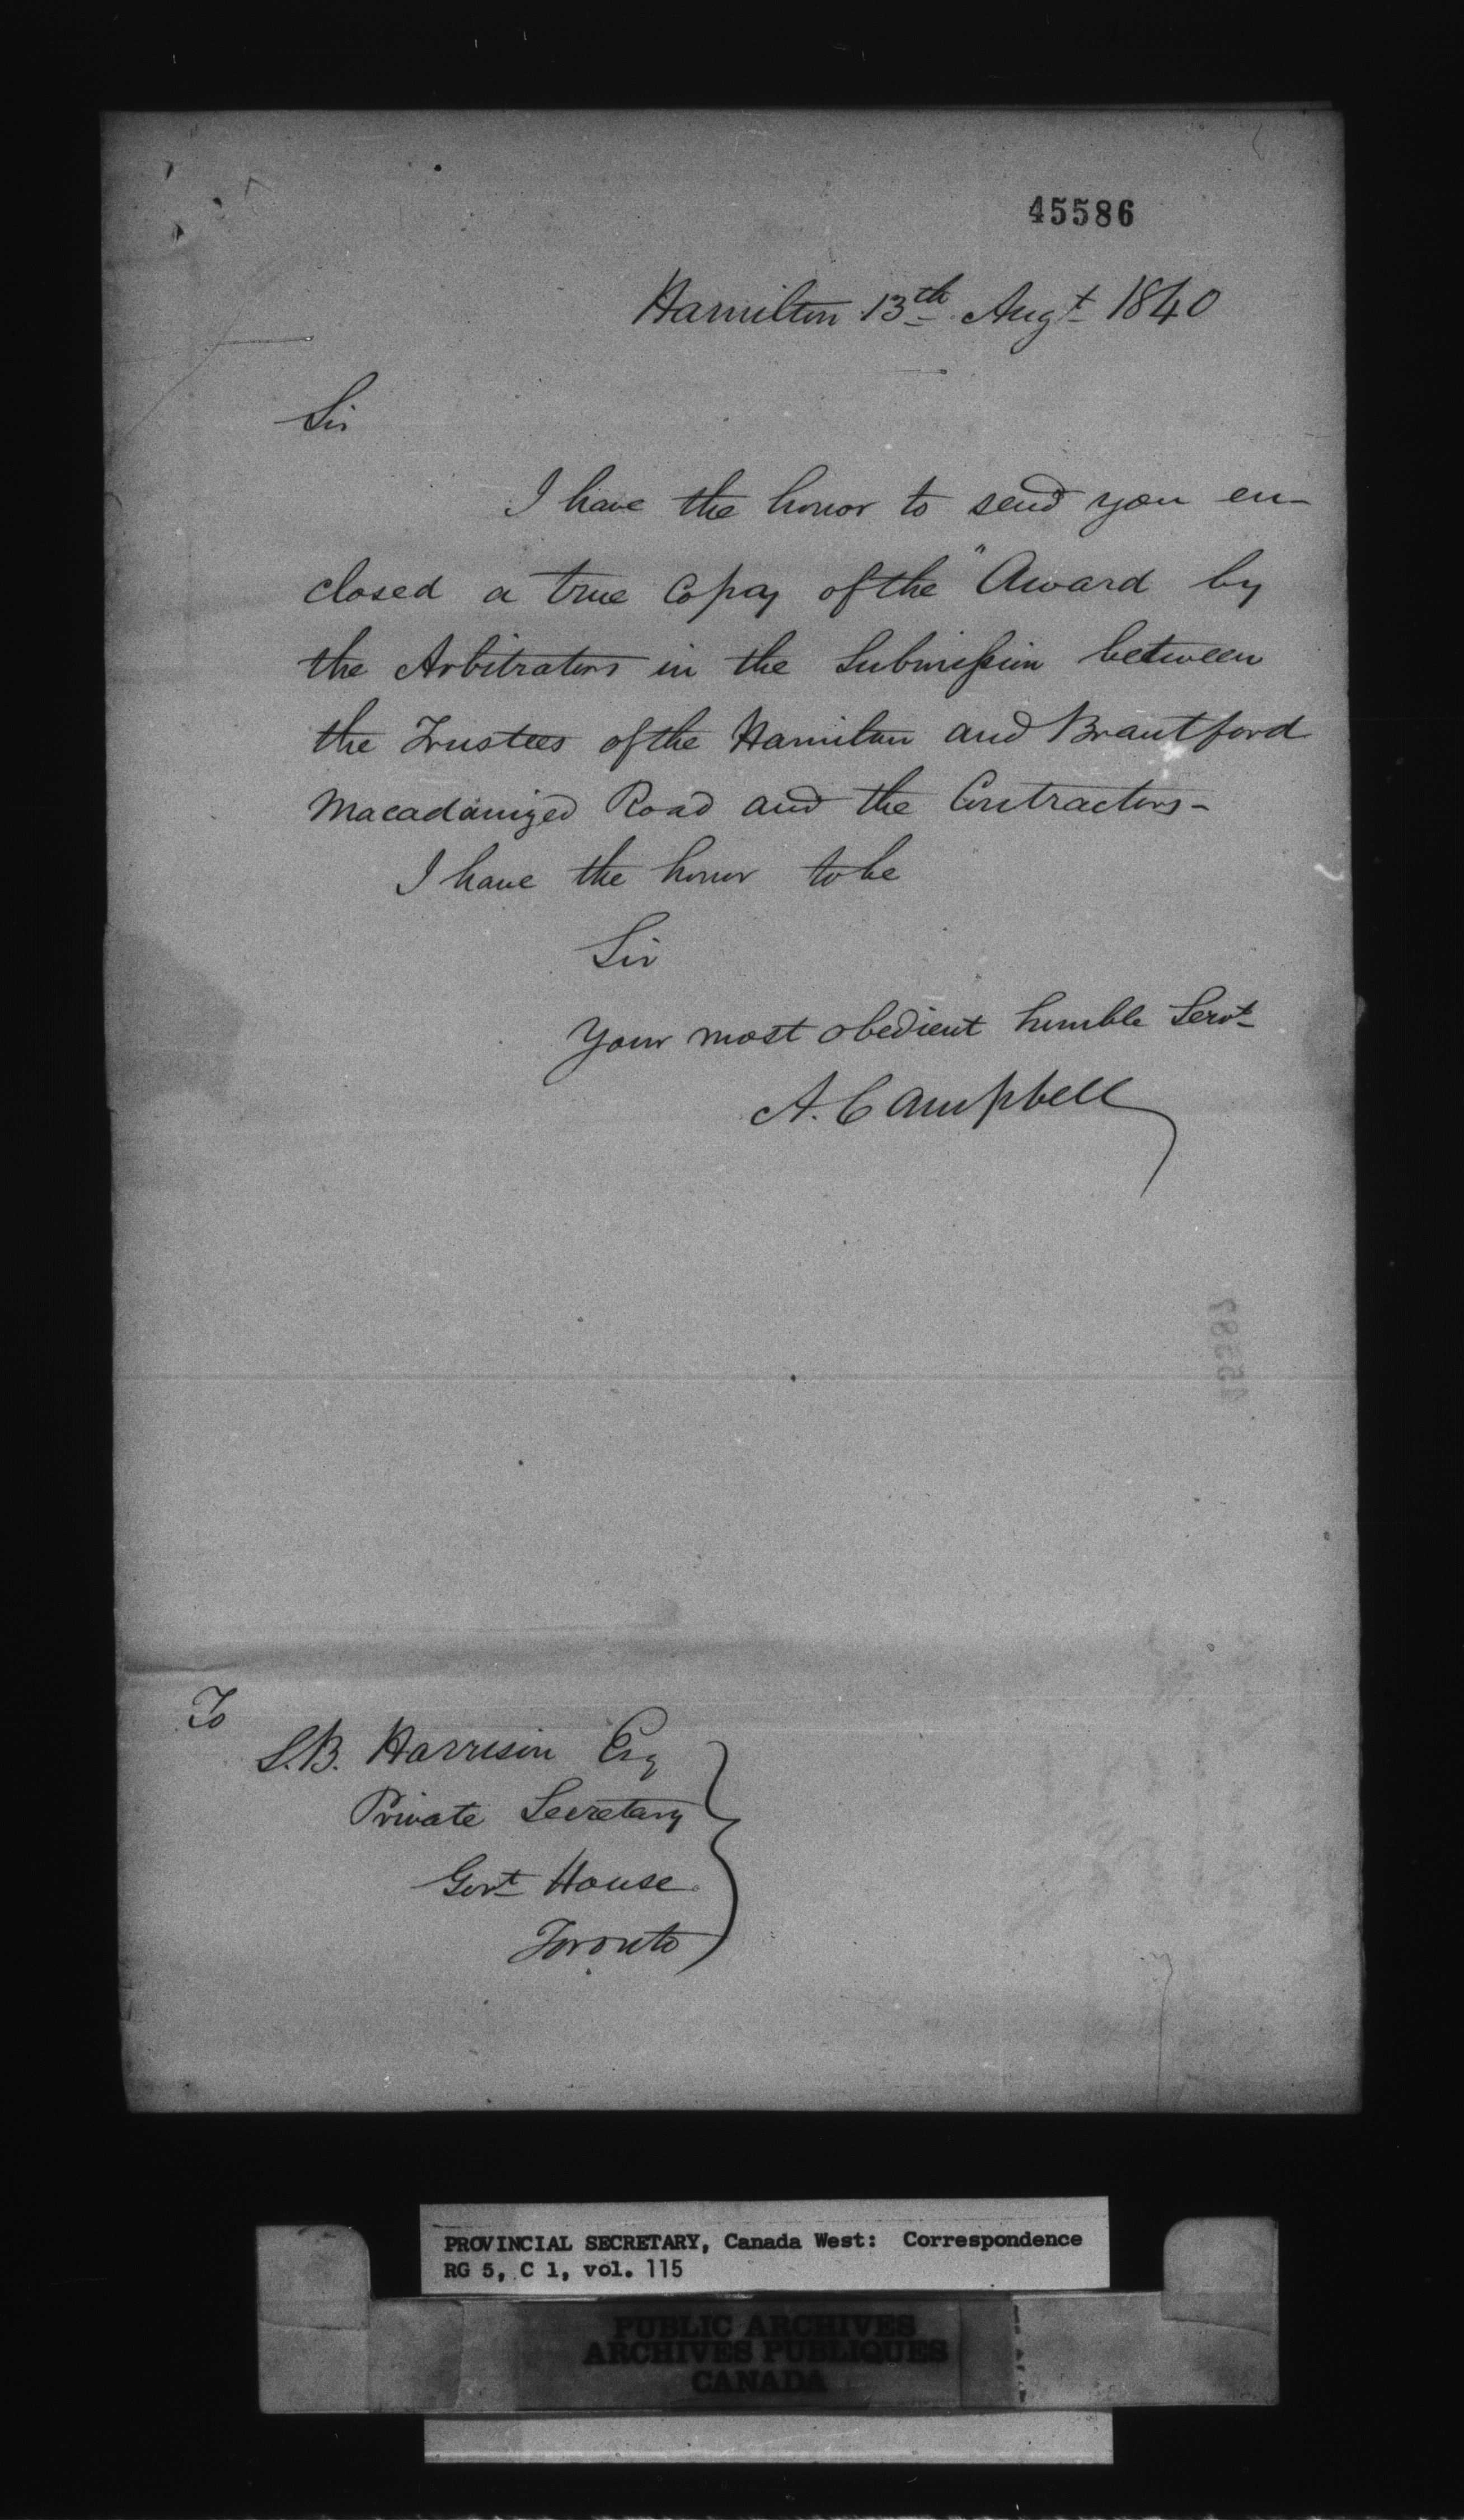 45586
Hamilton 13th Augt 1840
Sir
I have the honor to send you en-
closed a true Copy of the "Award by
the Arbitrators in the Submission between
the Trustees of the Hamilton and Brantford
Macadamized Road and the Contractors-
I have the honor to be
Sir
Your most obedient humble Servt
A. Campbell
To
S.B. Harrison Esq
Private Secretary
Govt House
Toronto
PROVINCIAL SECRETARY, Canada West: Correspondence
RG 5, C 1, vol. 115
PUBLIC ARCHIVES
ARCHIVES PUBLIQUES
CANADA